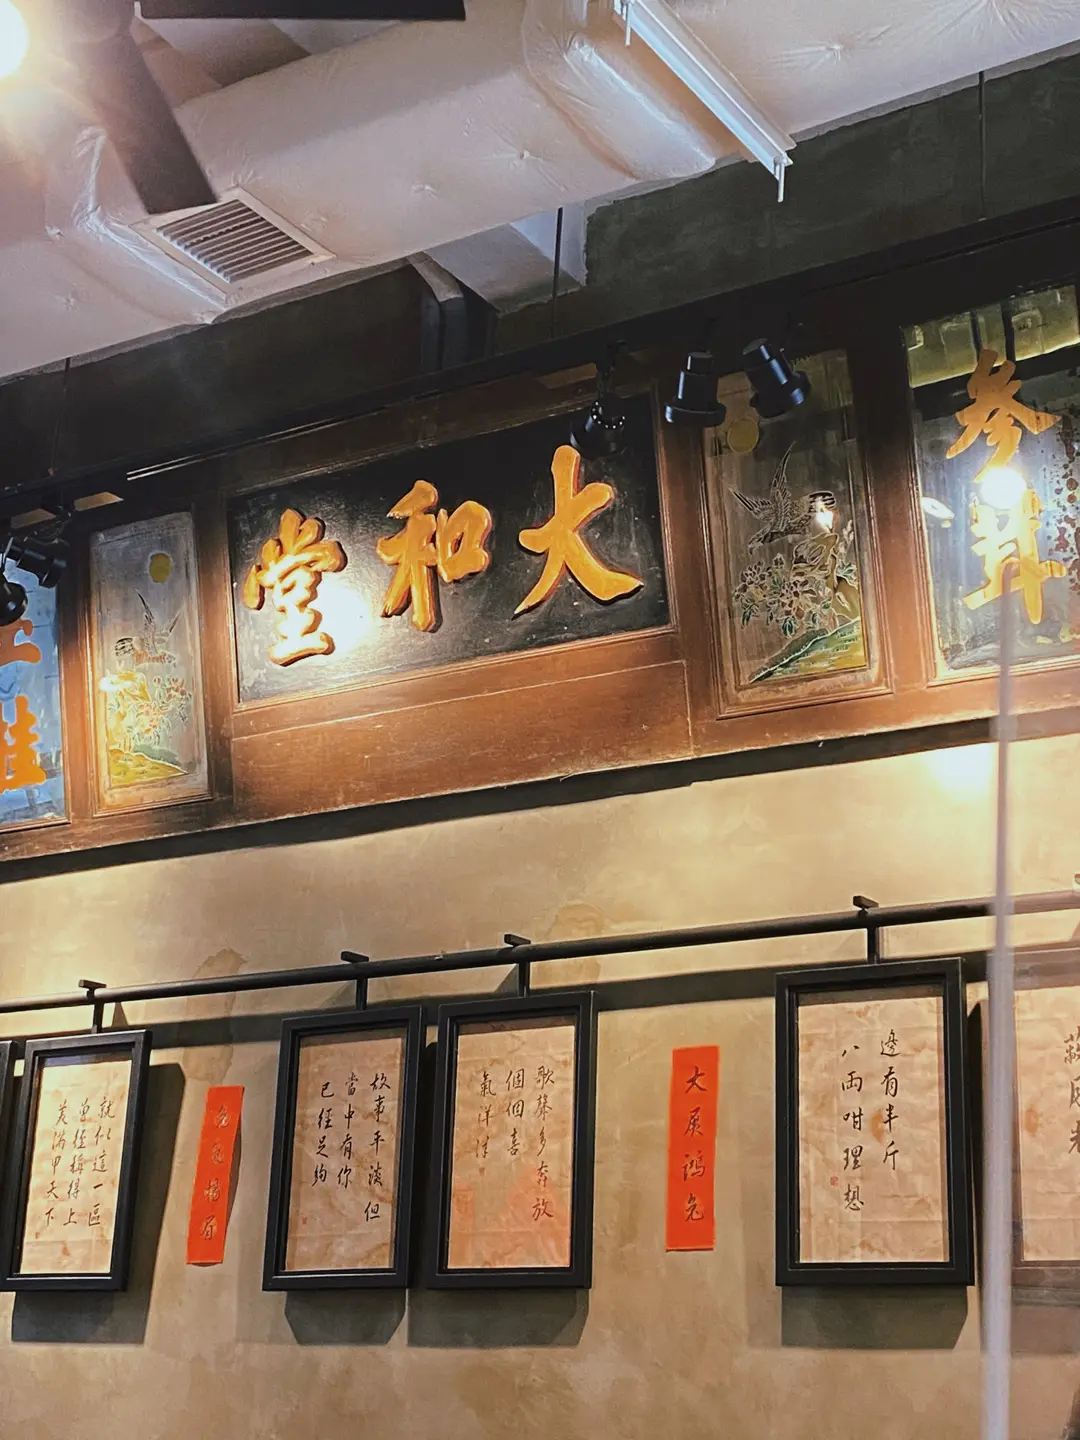 參茸
大和堂
桂
邊有半斤
八兩咁理想
大展鴻兔
歌聲多奔放
個個喜
氣洋洋
故事平淡但
當中有你
已經足夠
揚眉
就似這一區
曾經稱得上
美滿甲天下